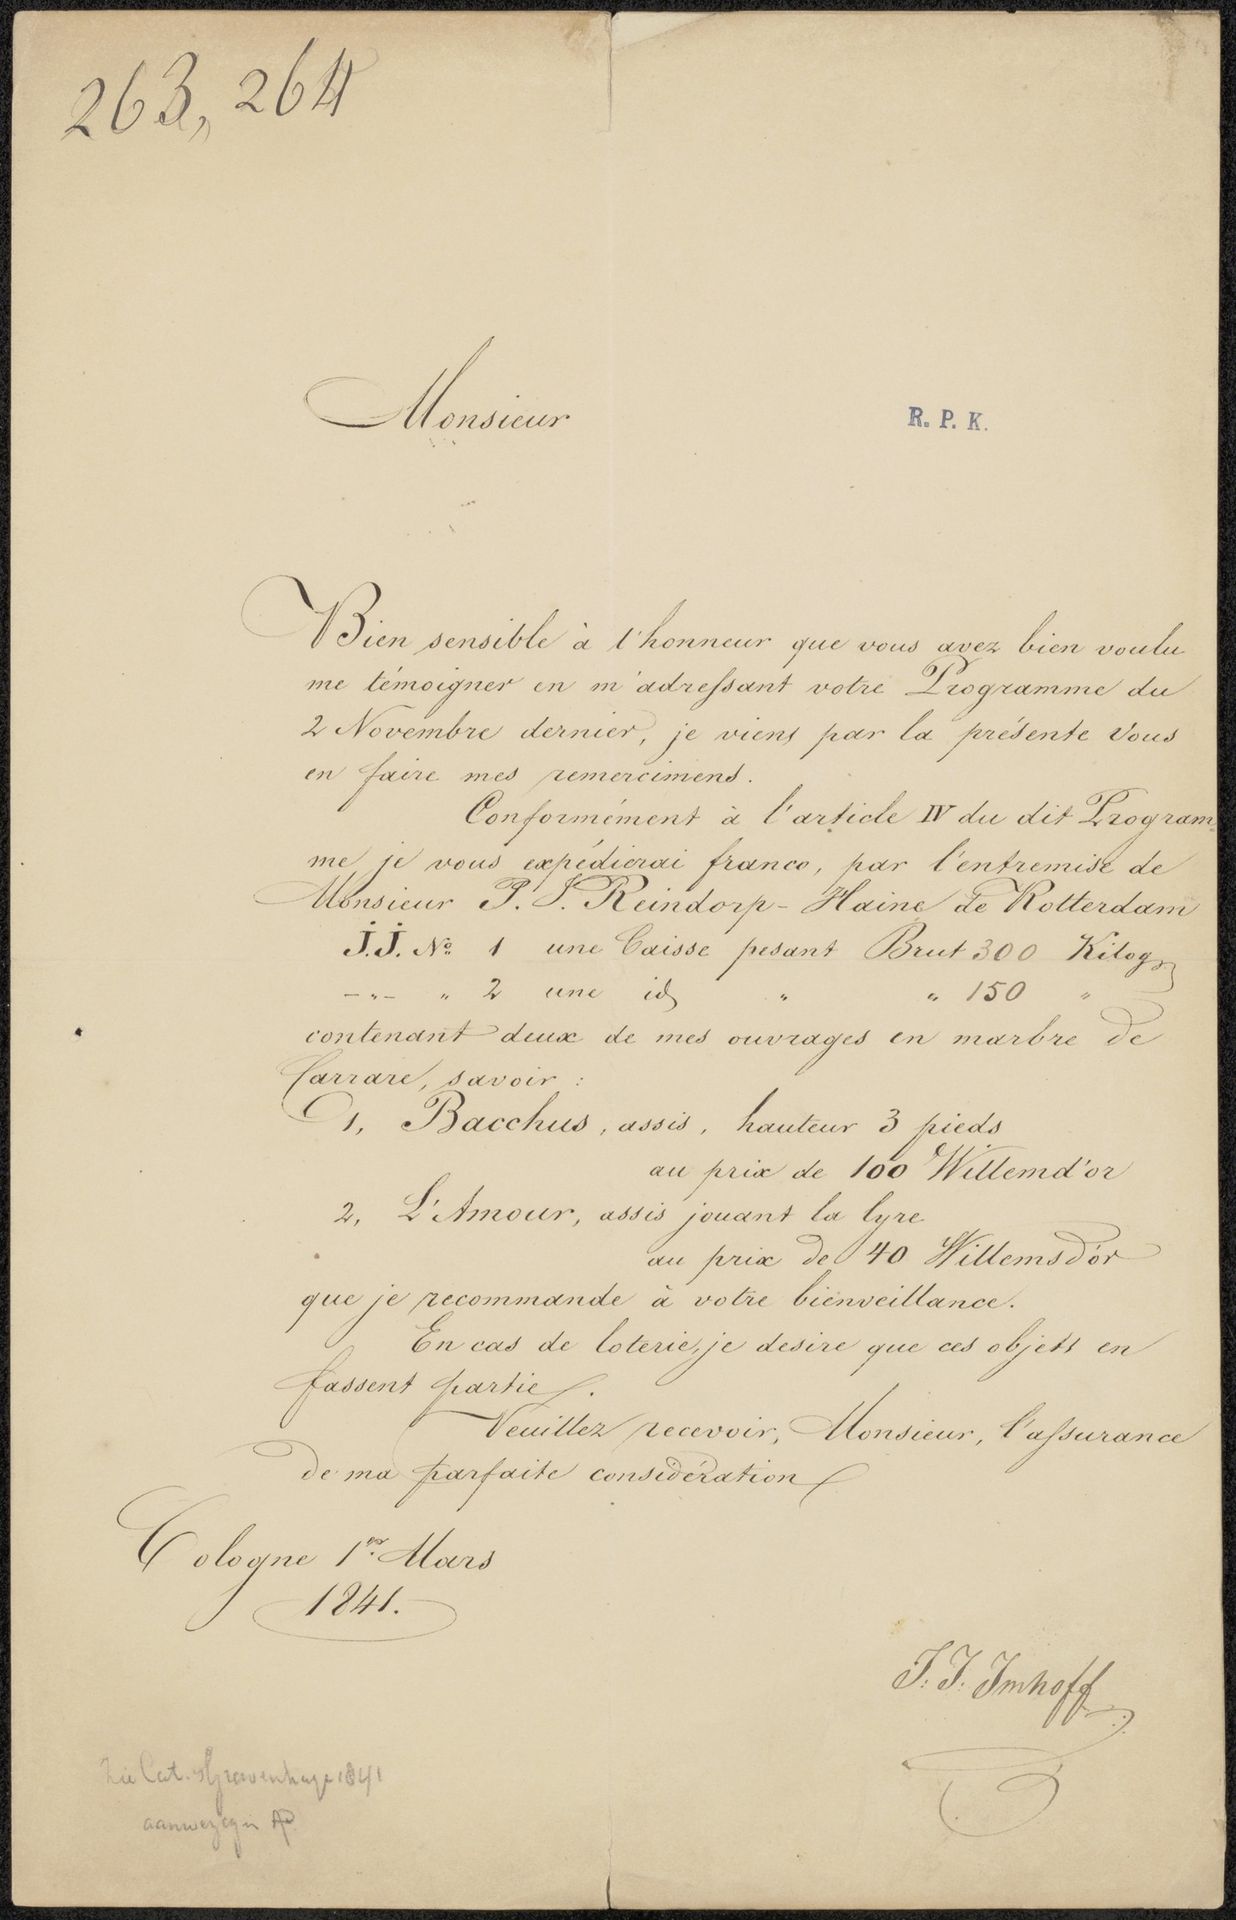 263, 264
Monsieur
R. P. K.
Bien sensible à l'honneur que vous avez bien voulu
me témoigner en m'adressant votre Programme du
2 Novembre dernier, je viens par la présente Vous
en faire mes remercimens.
Conformément à l'article IV du dit Program-
me je vous expédierai franco, par l'entremise de
Monsieur P. J. Reindorp-Haine de Rotterdam
J.J. No. 1 une Caisse pesant Brut 300 Kilog
-"- " 2 une id " " 150 "
contenant deux de mes ouvrages en marbre de
Carrare, savoir :
1, Bacchus, assis, hauteur 3 pieds
au prix de 100 Willemd'or
2, L'Amour, assis jouant la lyre
au prix de 40 Willemsd'or
que je recommande à votre bienveillance.
En cas de loterie, je desire que ces objets en
fassent partie.
Veuillez recevoir, Monsieur, l'assurance
de ma parfaite considération
Cologne 1er. Mars
1841.
J. J. Imhoff
Zie Cat. 's Gravenhage 1841
aanwezig in